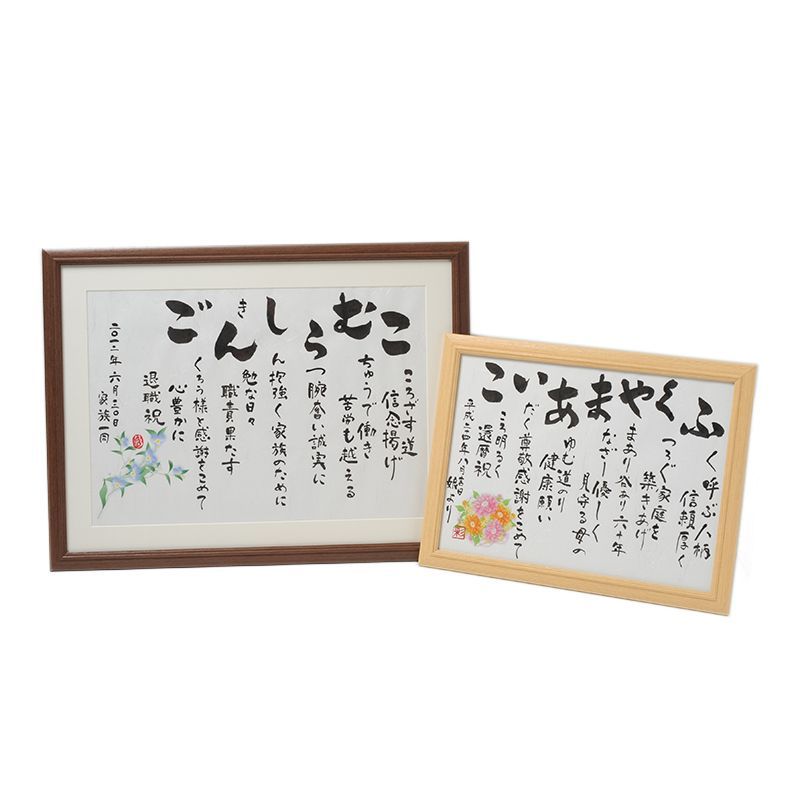 こころざす道
信念揚げ
むちゅうで働き
苦労も越える
らつ腕奮い誠実に
しん抱強く家族のために
きん勉な日々
職責果たす
ごくろう様と感謝をこめて
心豊かに
退職祝
二〇一二年六月三〇日
家族一同
ふく呼ぶ人柄
信頼厚く
くつろぐ家庭を
築きあげ
やまあり谷あり六十年
まなざし優しく
見守る母の
あゆむ道のり
健康願い
いだく尊敬感謝をこめて
こころ明るく
還暦祝
平成二四年八月吉日
娘より